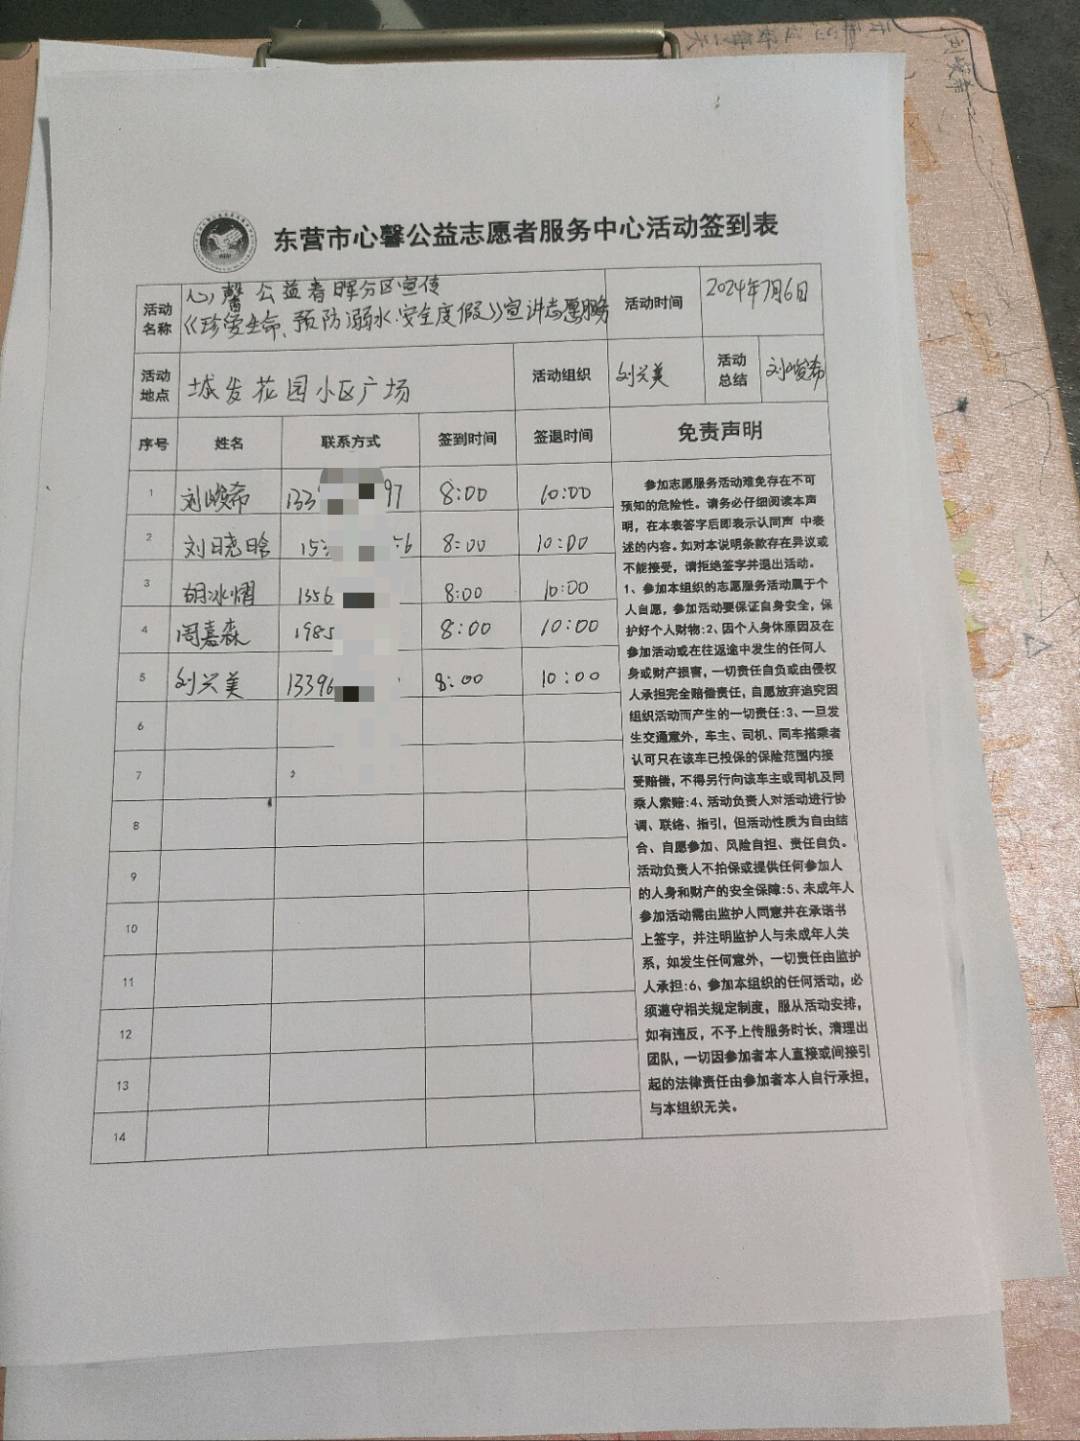 东营市心馨公益志愿者服务中心活动签到表
活动名称 心馨公益春晖分区宣传
《珍爱生命、预防溺水、安全度假》宣讲志愿服务
活动时间 2024年7月6日
活动地点 城发花园小区广场 活动组织 刘兴美 活动总结 刘峻希
序号 姓名 联系方式 签到时间 签退时间 免责声明
1 刘峻希 133 97 8:00 10:00
2 刘日晓晗 15 6 8:00 10:00
3 胡冰熠 1356 8:00 10:00
4 周嘉森 1985 8:00 10:00
5 刘兴美 13396 8:00 10:00
6
7
8
9
10
11
12
13
14
参加志愿服务活动难免存在不可
预知的危险性。请务必仔细阅读本声
明，在本表签字后即表示认同声 中表
述的内容。如对本说明条款存在异议或
不能接受，请拒绝签字并退出活动。
1、参加本组织的志愿服务活动属于个
人自愿，参加活动要保证自身安全，保
护好个人财物:2、因个人身体原因及在
参加活动或在往返途中发生的任何人
身或财产损害，一切责任自负或由侵权
人承担完全赔偿责任，自愿放弃追究因
组织活动而产生的一切责任:3、一旦发
生交通意外，车主、司机、同车搭乘者
认可只在该车已投保的保险范围内接
受赔偿，不得另行向该车主或司机及同
乘人索赔:4、活动负责人对活动进行协
调、联络、指引，但活动性质为自由结
合、自愿参加、风险自担、责任自负。
活动负责人不拍保或提供任何参加人
的人身和财产的安全保障:5、未成年人
参加活动需由监护人同意并在承诺书
上签字，并注明监护人与未成年人关
系，如发生任何意外，一切责任由监护
人承担:6、参加本组织的任何活动，必
须遵守相关规定制度，服从活动安排，
如有违反，不予上传服务时长，清理出
团队，一切因参加者本人直接或间接引
起的法律责任由参加者本人自行承担，
与本组织无关。